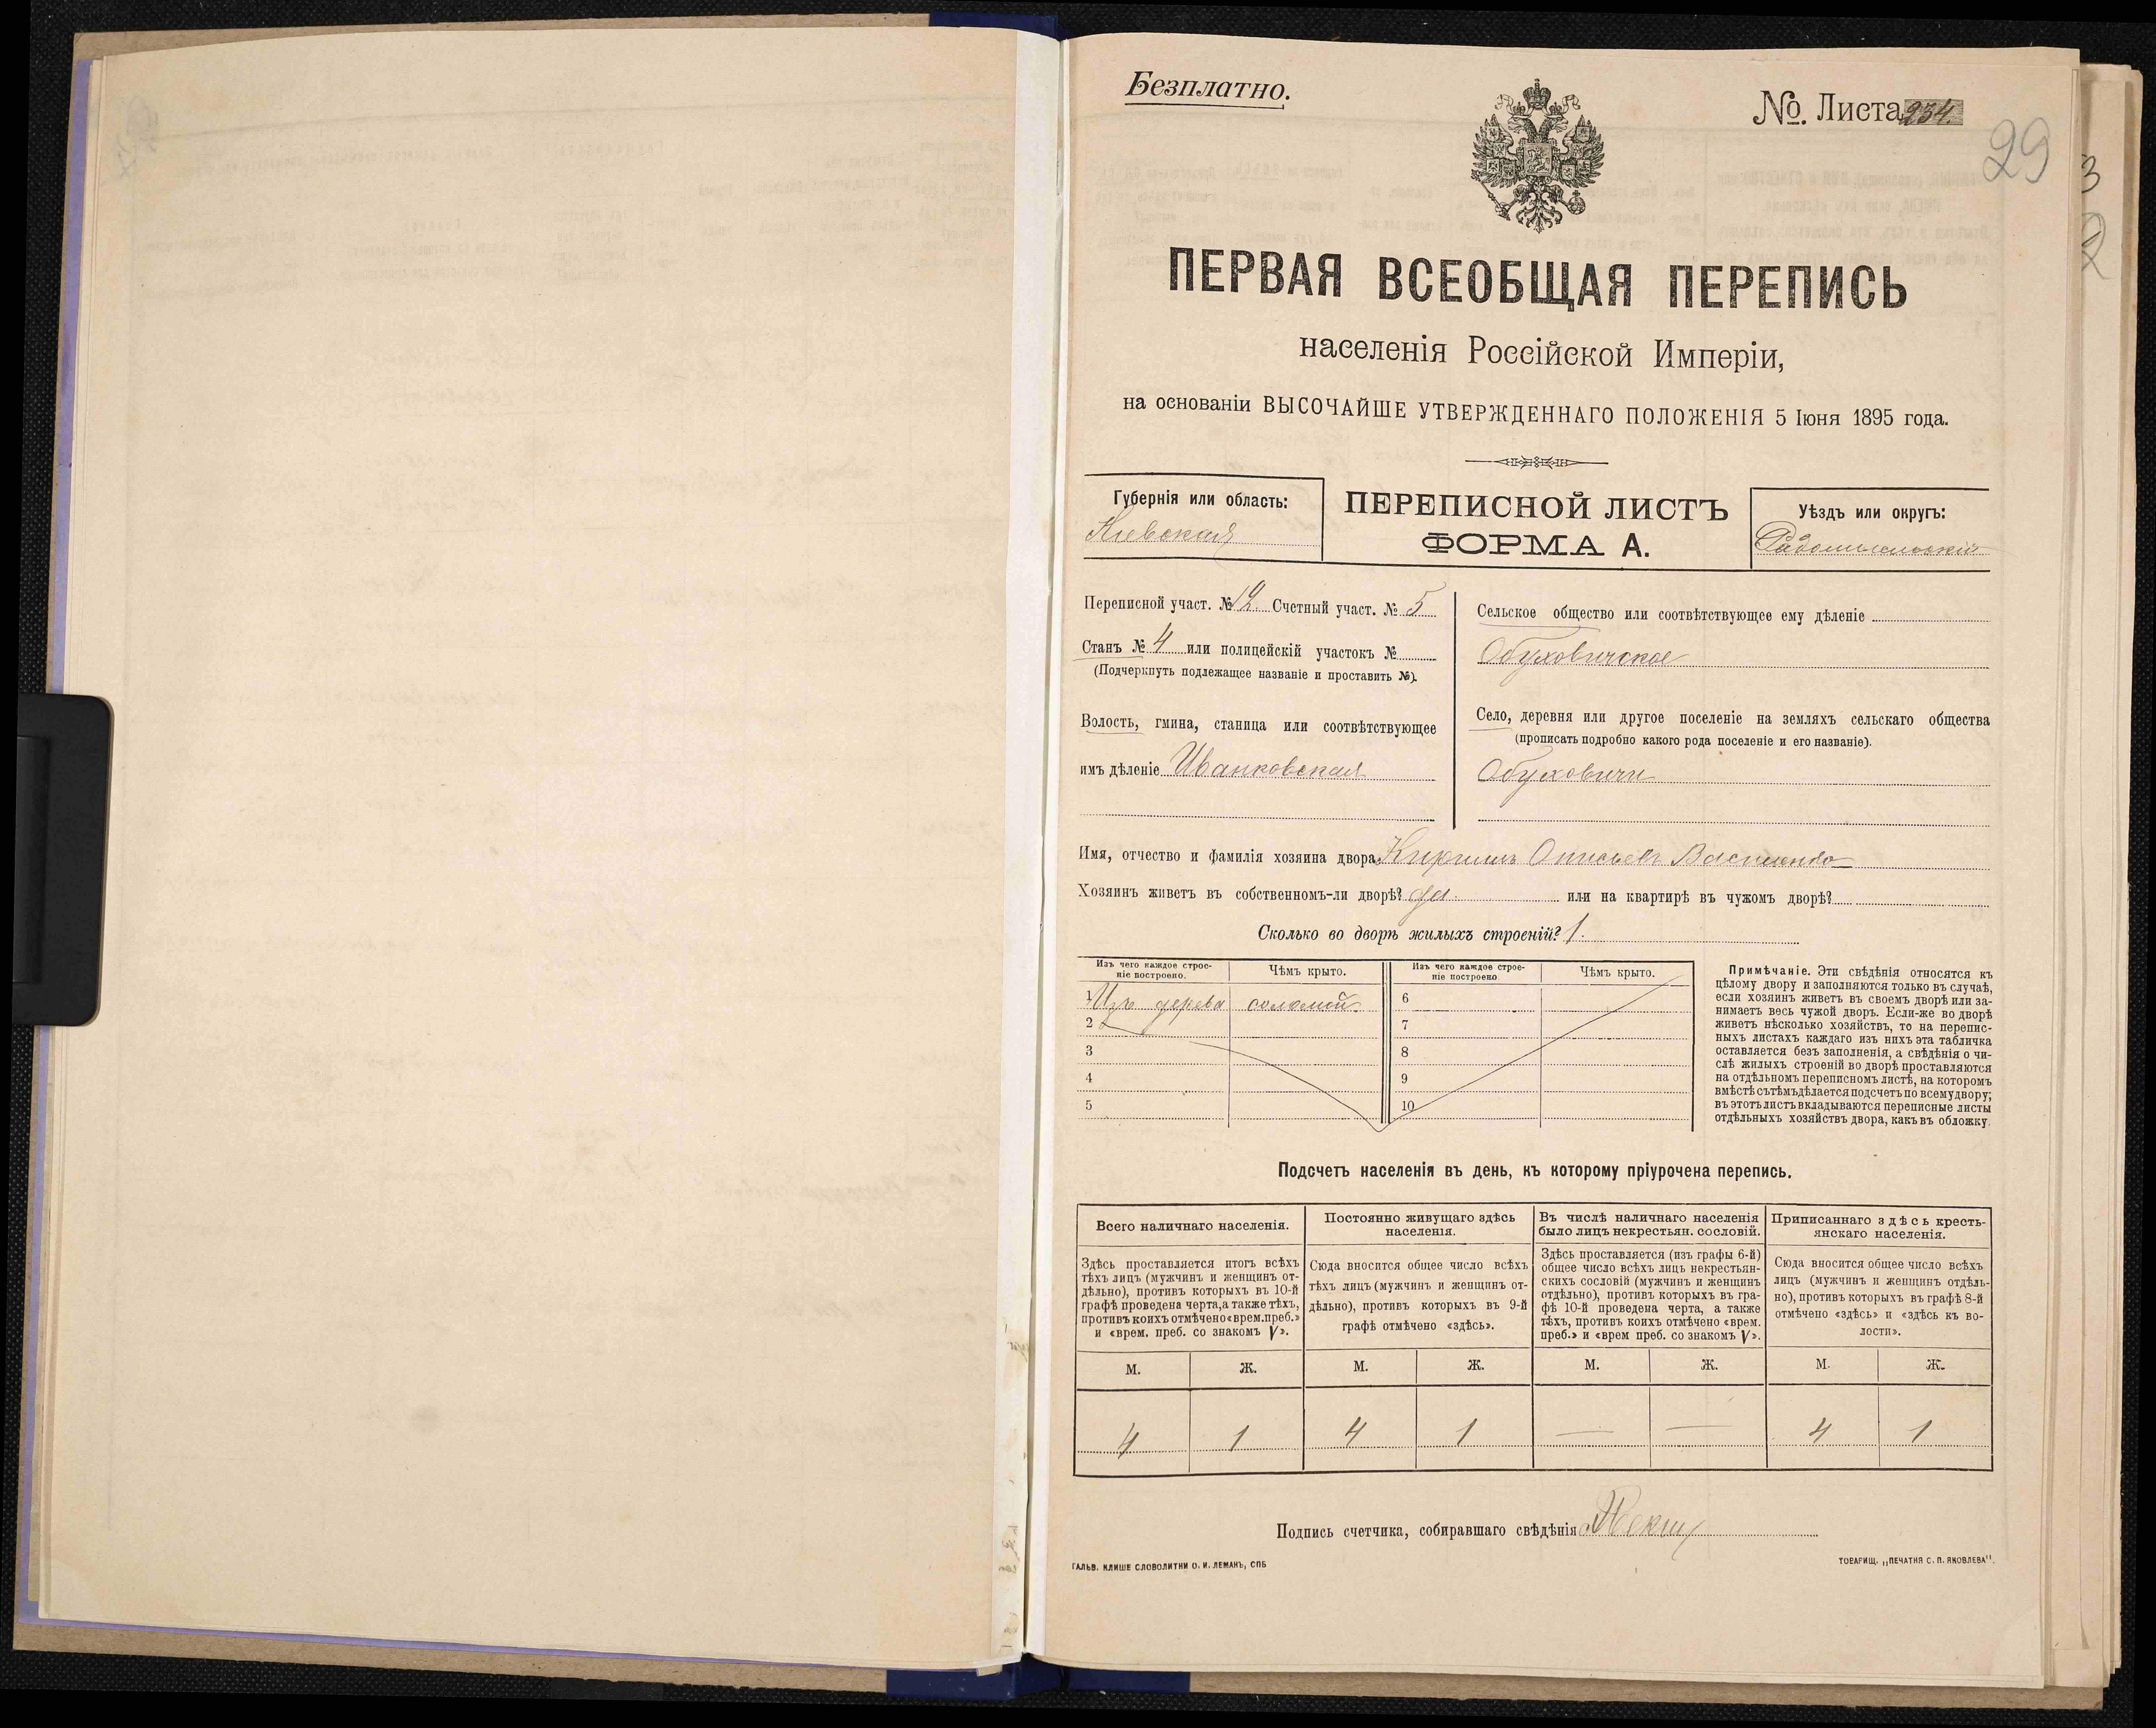 Безплатно.
№. Листа 234.
29
ПЕРВАЯ ВСЕОБЩАЯ ПЕРЕПИСЬ
населенія Россійской Имперіи,
на основаніи ВЫСОЧАЙШЕ УТВЕРЖДЕННАГО ПОЛОЖЕНІЯ 5 Іюня 1895 года.
Губернія или область:
Кіевская
ПЕРЕПИСНОЙ ЛИСТЪ
ФОРМА А.
Уѣздъ или округъ:
Радомысльскій
Переписной участ. № 12. Счетный участ. № 5
Станъ № 4 или полицейскій участокъ №
(Подчеркнуть подлежащее названіе и проставить №).
Волость, гмина, станица или соотвѣтствующее
имъ дѣленіе Иванковская
Сельское общество или соотвѣтствующее ему дѣленіе
Обуховичское
Село, деревня или другое поселеніе на земляхъ сельскаго общества
(прописать подробно какого рода поселеніе и его названіе).
Обуховичи
Имя, отчество и фамилія хозяина двора: Кириллъ
Хозяинъ живетъ въ собственномъ-ли дворѣ? да. или на квартирѣ въ чужомъ дворѣ?
Сколько во дворѣ жилыхъ строеній? 1.
Изъ чего каждое строе-
ніе построено.
Чѣмъ крыто.
Изъ чего каждое строе-
ніе построено
Чѣмъ крыто.
1 Изъ дерева соломой.
2
3
4
5
6
7
8
9
10
Примѣчаніе. Эти свѣдѣнія относятся къ
цѣлому двору и заполняются только въ случаѣ,
если хозяинъ живетъ въ своемъ дворѣ или за-
нимаетъ весь чужой дворъ. Если-же во дворѣ
живетъ нѣсколько хозяйствъ, то на перепис-
ныхъ листахъ каждаго изъ нихъ эта табличка
оставляется безъ заполненія, а свѣдѣнія о чи-
слѣ жилыхъ строеній во дворѣ проставляются
на отдѣльномъ переписномъ листѣ, на которомъ
вмѣстѣ съ тѣмъ дѣлается подсчетъ по всему двору;
въ этотъ листъ вкладываются переписные листы
отдѣльныхъ хозяйствъ двора, какъ въ обложку.
Подсчетъ населенія въ день, къ которому пріурочена перепись.
Всего наличнаго населенія.
Здѣсь проставляется итогъ всѣхъ
тѣхъ лицъ (мужчинъ и женщинъ от-
дѣльно), противъ которыхъ въ 10-й
графѣ проведена черта, а также тѣхъ,
противъ коихъ отмѣчено «врем. преб.»
и «врем. преб. со знакомъ V».
Постоянно живущаго здѣсь
населенія.
Сюда вносится общее число всѣхъ
тѣхъ лицъ (мужчинъ и женщинъ от-
дѣльно), противъ которыхъ въ 9-й
графѣ отмѣчено «здѣсь».
Въ числѣ наличнаго населенія
было лицъ некрестьян. сословій.
Здѣсь проставляется (изъ графы 6-й)
общее число всѣхъ лицъ некрестьян-
скихъ сословій (мужчинъ и женщинъ
отдѣльно), противъ которыхъ въ гра-
фѣ 10-й проведена черта, а также
тѣхъ, противъ коихъ отмѣчено «врем.
преб.» и «врем преб. со знакомъ V».
Приписаннаго здѣсь кресть-
янскаго населенія.
Сюда вносится общее число всѣхъ
лицъ (мужчинъ и женщинъ отдѣль-
но), противъ которыхъ въ графѣ 8-й
отмѣчено «здѣсь» и «здѣсь къ во-
лости».
М. Ж. М. Ж. М. Ж. М. Ж.
4 1 4 1 — — 4 1
Подпись счетчика, собиравшаго свѣдѣнія
ГАЛЬВ. КЛИШЕ СЛОВОЛИТНИ О. И. ЛЕМАНЪ, СПБ
ТОВАРИЩ. „ПЕЧАТНЯ С. П. ЯКОВЛЕВА".